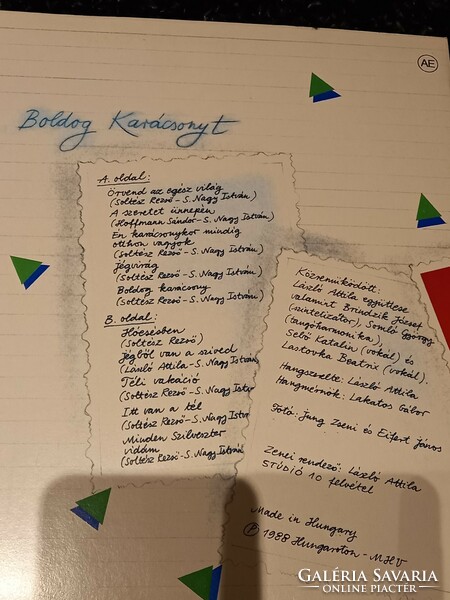 AE
Boldog Karácsonyt
A. oldal:
Örvend az egész világ
(Soltész Rezső - S. Nagy István)
A szeretet ünnepén
(Hoffmann Sándor - S. Nagy István)
Én karácsonykor mindig
otthon vagyok
(Soltész Rezső - S. Nagy István)
Jégvirág
(Soltész Rezső - S. Nagy István)
Boldog karácsony
(Soltész Rezső - S. Nagy István)
B. oldal:
Hóesésben
(Soltész Rezső)
Jégből van a szíved
(László Attila - S. Nagy István)
Téli vakáció
(Soltész Rezső - S. Nagy Istvá
Itt van a tél
(Soltész Rezső - S. Nagy István
Minden Szilveszter
vidám
(Soltész Rezső - S. Nagy István
Közreműködött:
László Attila együttese
valamint Brindzik József
(szintetizátor), Somló György
(tangóharmonika),
Sebő Katalin (vokál) és
Lastovka Beatrix (vokál).
Hangszerelte: László Attila
Hangmérnök: Lakatos Gábor
Fotó: Jung Zseni és Eifert János
Zenei rendező: László Attila
STÚDIÓ 10 felvétel
Made in Hungary
℗ 1988 Hungaroton - MHV
GALÉRIA SAVARIA
ONLINE PIACTÉR